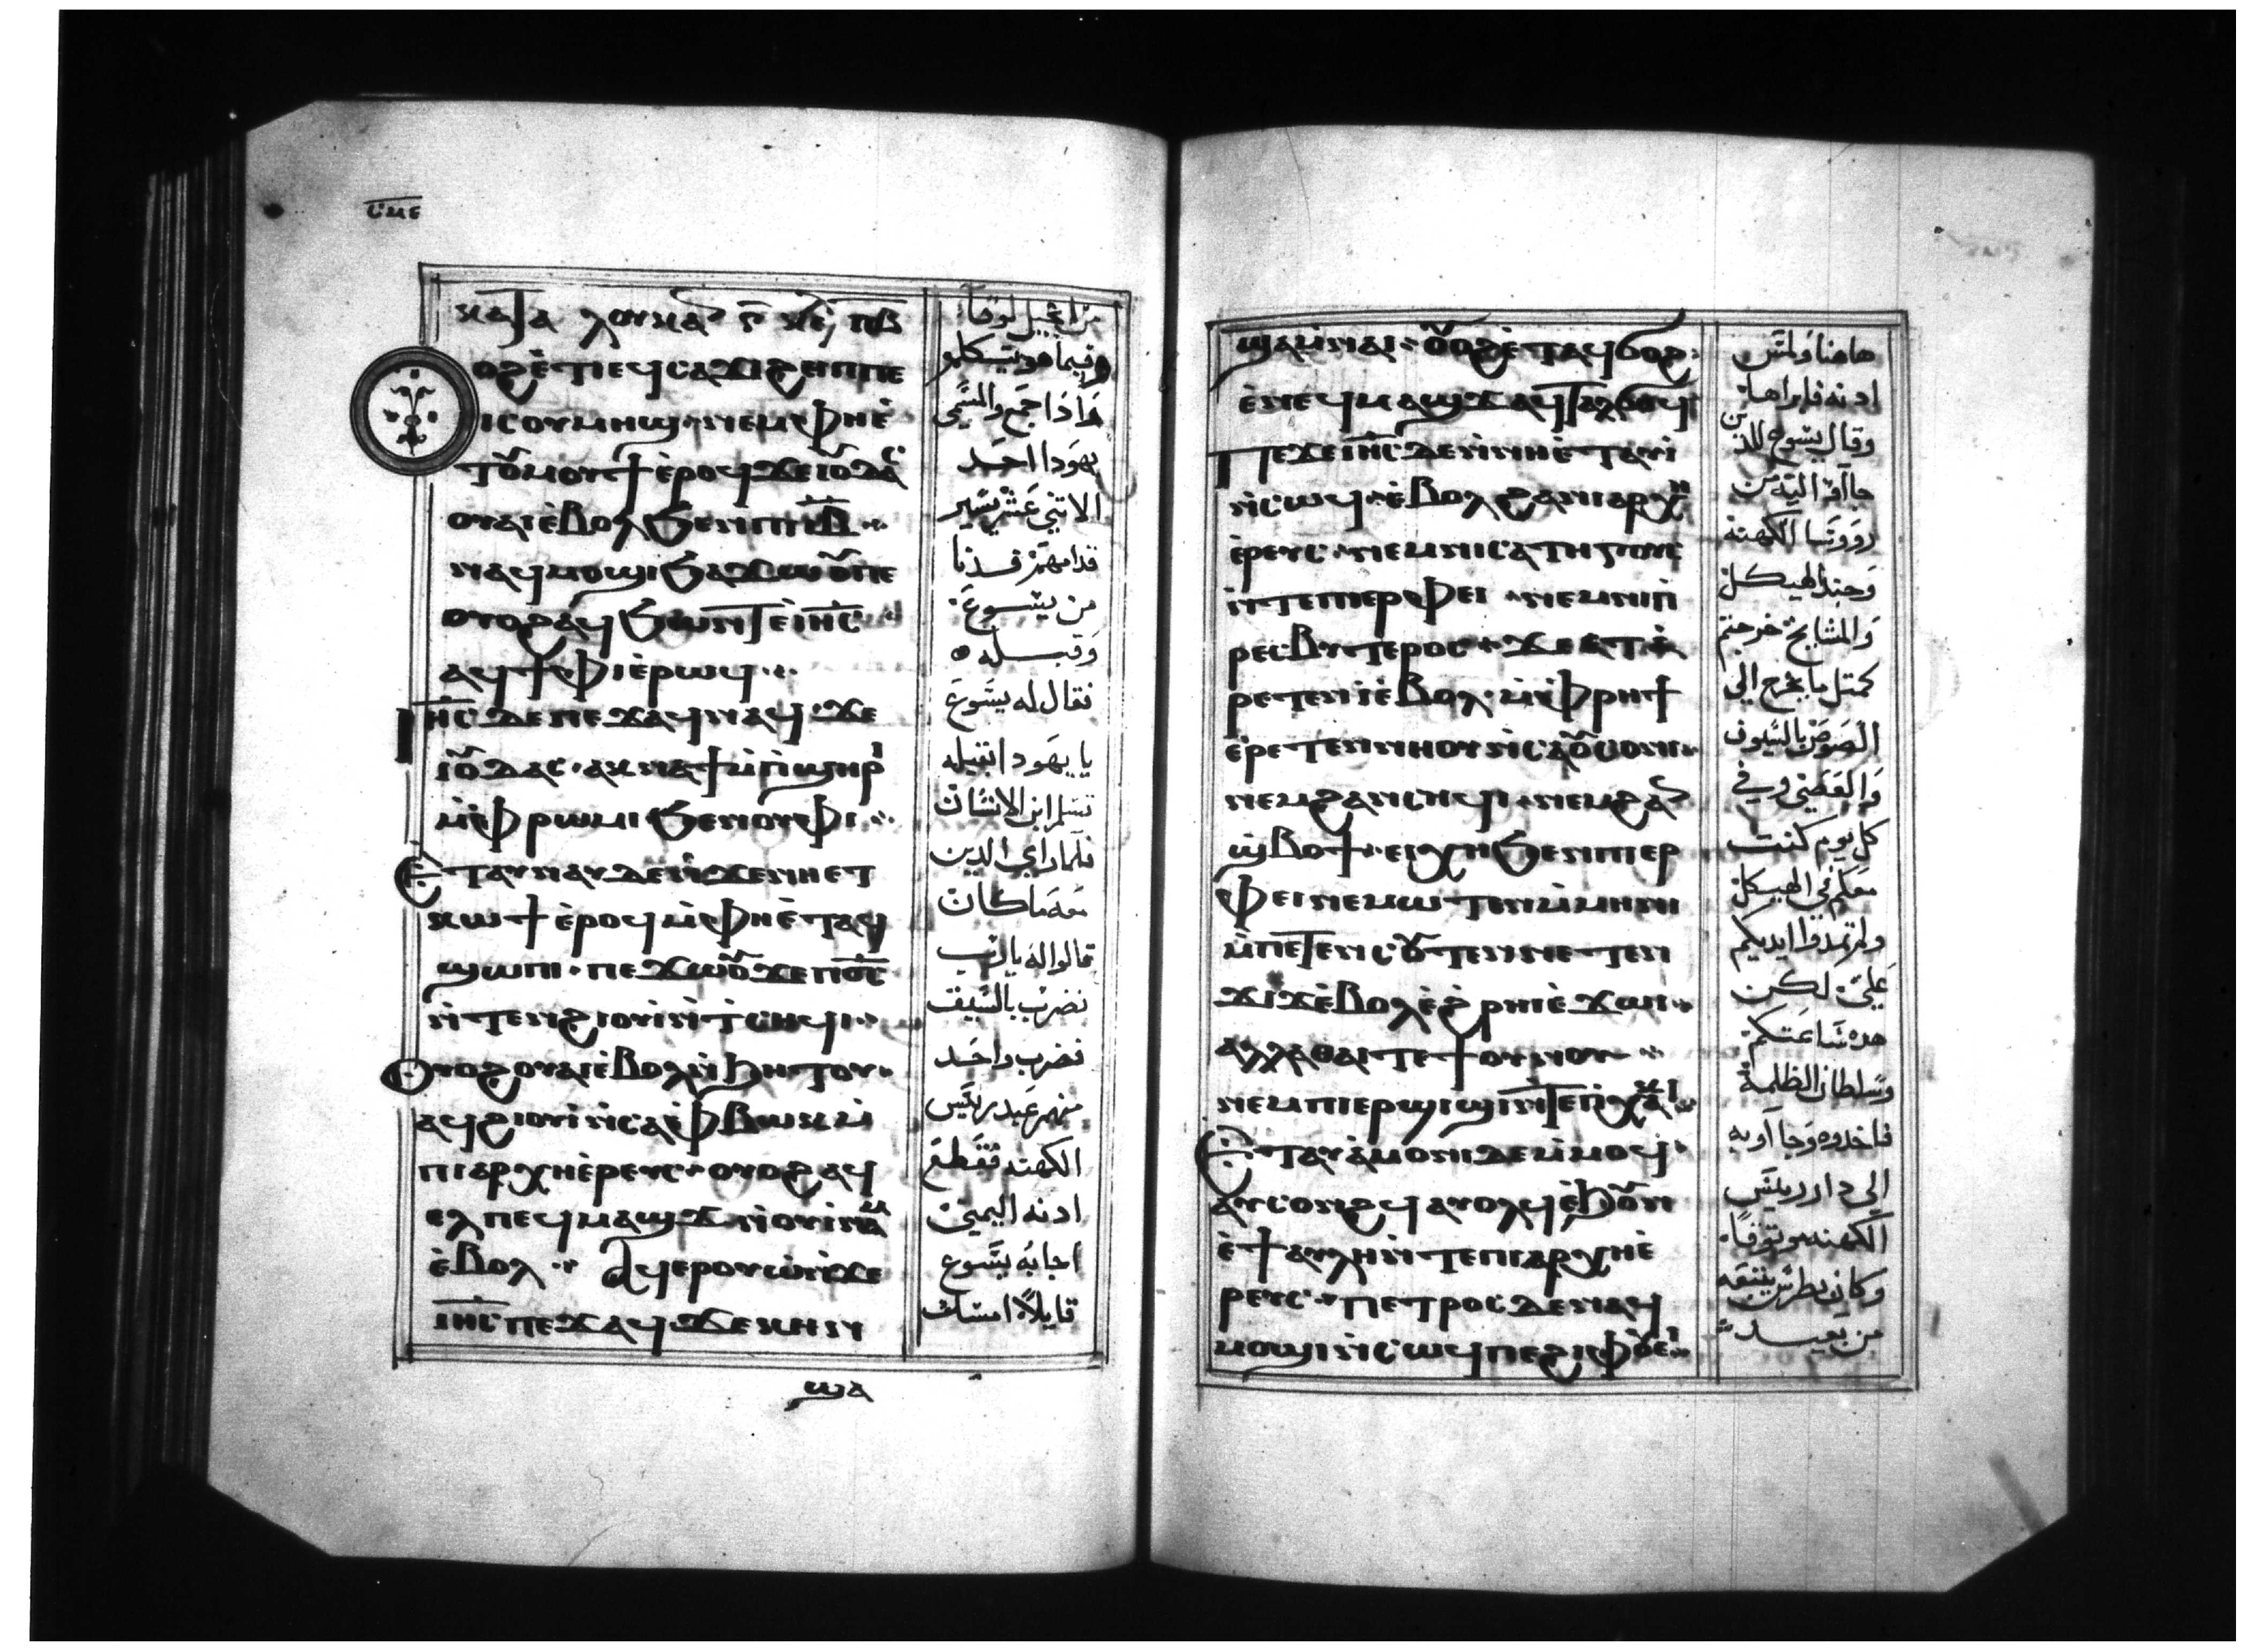 ⲥⲙⲉ
ⲕⲁⲧⲁ ⲗⲟⲩⲕⲁ
ⲟϩ ⲉ̇ⲧⲓ ⲉϥⲥⲁϫⲓ ϩⲏⲡⲡⲉ
ⲓⲥ ⲟⲩⲙⲏϣ ⲛⲉⲙ ⲫⲏⲉ̇
ⲧⲟⲩⲙⲟⲩϯ ⲉ̇ⲣⲟϥ ϫⲉ ⲓⲟⲩⲇⲁⲥ
ⲟⲩⲁⲓ ⲉ̇ⲃⲟⲗ ϧⲉⲛ ⲡⲓⲓ̅ⲃ̅
ⲛⲁϥⲙⲟϣⲓ ϧⲁϫⲱⲟⲩ ⲡⲉ
ⲟⲩⲟϩ ⲁϥϧⲱⲛⲧ ⲉ̇ⲓⲏ̅ⲥ̅
ⲁϥϯⲫⲓ ⲉ̇ⲣⲱϥ
ⲓⲏ̅ⲥ̅ ⲇⲉ ⲡⲉϫⲁϥ ⲛⲁϥ ϫⲉ
ⲓⲟⲩⲇⲁⲥ ⲁⲕⲛⲁϯ ⲙ̇ⲡ̇ϣⲏⲣⲓ
ⲙ̇ⲫⲣⲱⲙⲓ ϧⲉⲛ ⲟⲩⲫⲓ
ⲉⲧⲁⲩⲛⲁⲩ ⲇⲉ ⲛ̇ϫⲉ ⲛⲏⲉⲧ
ⲕⲱϯ ⲉ̇ⲣⲟϥ ⲙ̇ⲫⲏⲉ̇ⲧⲁϥ
ϣⲱⲡⲓ ⲡⲉϫⲱⲟⲩ ϫⲉ ⲡⲟ̅ⲥ̅
ⲛ̇ⲧⲉⲛϩⲓⲟⲩⲓ̇ ⲛ̇ⲧ̇ⲥⲏϥⲓ
ⲟⲩⲟϩ ⲟⲩⲁⲓ ⲉ̇ⲃⲟⲗ ⲛ̇ϧⲏⲧⲟⲩ
ⲁϥϩⲓⲟⲩⲓ̇ ⲛ̇ⲥⲁ ⲫ̇ⲃⲱⲕ ⲙ̇
ⲡⲓⲁⲣⲭⲏⲉ̇ⲣⲉⲩⲥ ⲟⲩⲟϩ ⲁϥ
ⲉⲗ ⲡⲉϥⲙⲁϣϫ ⲛ̇ⲟⲩⲓ̇ⲛⲁⲙ
ⲉ̇ⲃⲟⲗ ⲁϥⲉⲣⲟⲩⲱ̇ ⲛ̇ϫⲉ
ⲓⲏ̅ⲥ̅ ⲡⲉϫⲁϥ ϫⲉ ⲕⲏⲛ
ϣⲁ
من انجيل لوقا
وفيما هو يتكلم
وَاذا جمع والمسمى
يهودا احد
الاتني عشر يسير
قدامهم فدنا
من يسوع
وقبله
فقال له يسوع
يا يهودا ابقبله
تسلم ابن الانسان
فلما راي الذين
معه ما كان
قالوا له يارب
نضرب بالسيف
فضرب واحد
منهم عبد رييس
الكهنه فقطع
ادنه اليمين
اجابه يسوع
قايلاً امسك
ϣⲁ ⲙ̇ⲛⲁⲓ ⲟⲩⲟϩ ⲉ̇ⲧⲁϥϭⲟϩ
ⲉ̇ⲡⲉϥⲙⲁϣϫ ⲁϥⲧⲁⲗϭⲟϥ
ⲡⲉϫⲉ ⲓⲏ̅ⲥ̅ ⲇⲉ ⲛ̇ⲛⲏⲉ̇ⲧⲁⲩⲓ̇
ⲛ̇ⲥⲱϥ ⲉ̇ⲃⲟⲗ ϩⲁⲛⲁⲣⲭⲏ
ⲉ̇ⲣⲉⲩⲥ ⲛⲉⲙ ⲛⲓⲥⲁⲧⲏⲅⲟⲩⲥ
ⲛ̇ⲧⲉ ⲡⲓⲉⲣⲫⲉⲓ ⲛⲉⲙ ⲛⲓⲡ̇
ⲣⲉⲥⲃⲩⲧⲉⲣⲟⲥ ϫⲉ ⲉⲧⲁ
ⲣⲉⲧⲉⲛⲓ̇ ⲉ̇ⲃⲟⲗ ⲙ̇ⲫⲣⲏϯ
ⲉ̇ⲣⲉⲧⲉⲛⲛⲏⲟⲩ ⲛ̇ⲥⲁ ⲟⲩⲥⲟⲛⲓ
ⲛⲉⲙ ϩⲁⲛⲥⲏϥⲓ ⲛⲉⲙ ϩⲁⲛ
ϣⲃⲟϯ ⲉⲓⲭⲏ ϧⲉⲛ ⲡⲓⲉⲣ
ⲫⲉⲓ ⲛⲉⲙⲱⲧⲉⲛ ⲙ̇ⲙⲏⲛⲓ
ⲙ̇ⲡⲉⲧⲉⲛⲥⲟⲩⲧⲉⲛ ⲛⲉⲧⲉⲛ
ϫⲓϫ ⲉ̇ⲃⲟⲗ ⲉ̇ϩ̇ⲣⲏⲓ ⲉ̇ϫⲱⲓ
ⲁⲗⲗⲁ ⲑⲁⲓ ⲧⲉ ϯⲟⲩⲛⲟⲩ
ⲛⲉⲙ ⲡⲓⲉⲣϣⲓϣⲓ ⲛ̇ⲧⲉ ⲡ̇ⲭⲁⲕⲓ
ⲉⲧⲁⲩⲁ̇ⲙⲟⲛⲓ ⲇⲉ ⲙ̇ⲙⲟϥ
ⲁⲩⲥⲟⲛϩϥ ⲁⲩⲟⲗϥ ⲉ̇ϧⲟⲩⲛ
ⲉ̇ϯⲁⲩⲗⲏ ⲛ̇ⲧⲉ ⲡⲓⲁⲣⲭⲏⲉ̇
ⲣⲉⲩⲥ ⲡⲉⲧⲣⲟⲥ ⲇⲉ ⲛⲁϥ
ⲙⲟϣⲓ ⲛ̇ⲥⲱϥ ⲡⲉ ϩⲓ ⲫⲟⲩⲉⲓ
هاهنا ولمس
ادنه فابراها
وقال يسوع للذين
جاآوا اليه من
روؤسا الكهنة
وجند الهيكل
والمشايخ خرجتم
كمتل ما يخرج الي
اللصوص بالسيوف
والعصي وفي
كل يوم كنت
معكم في الهيكل
ولم تمدوا ايديكم
عليّ لكن
هده ساعتكم
وسلطان الظلمة
فاخدوه وجاآو به
الي دار رييس
الكهنه
وكان بطرس يتبعه
من بعيد